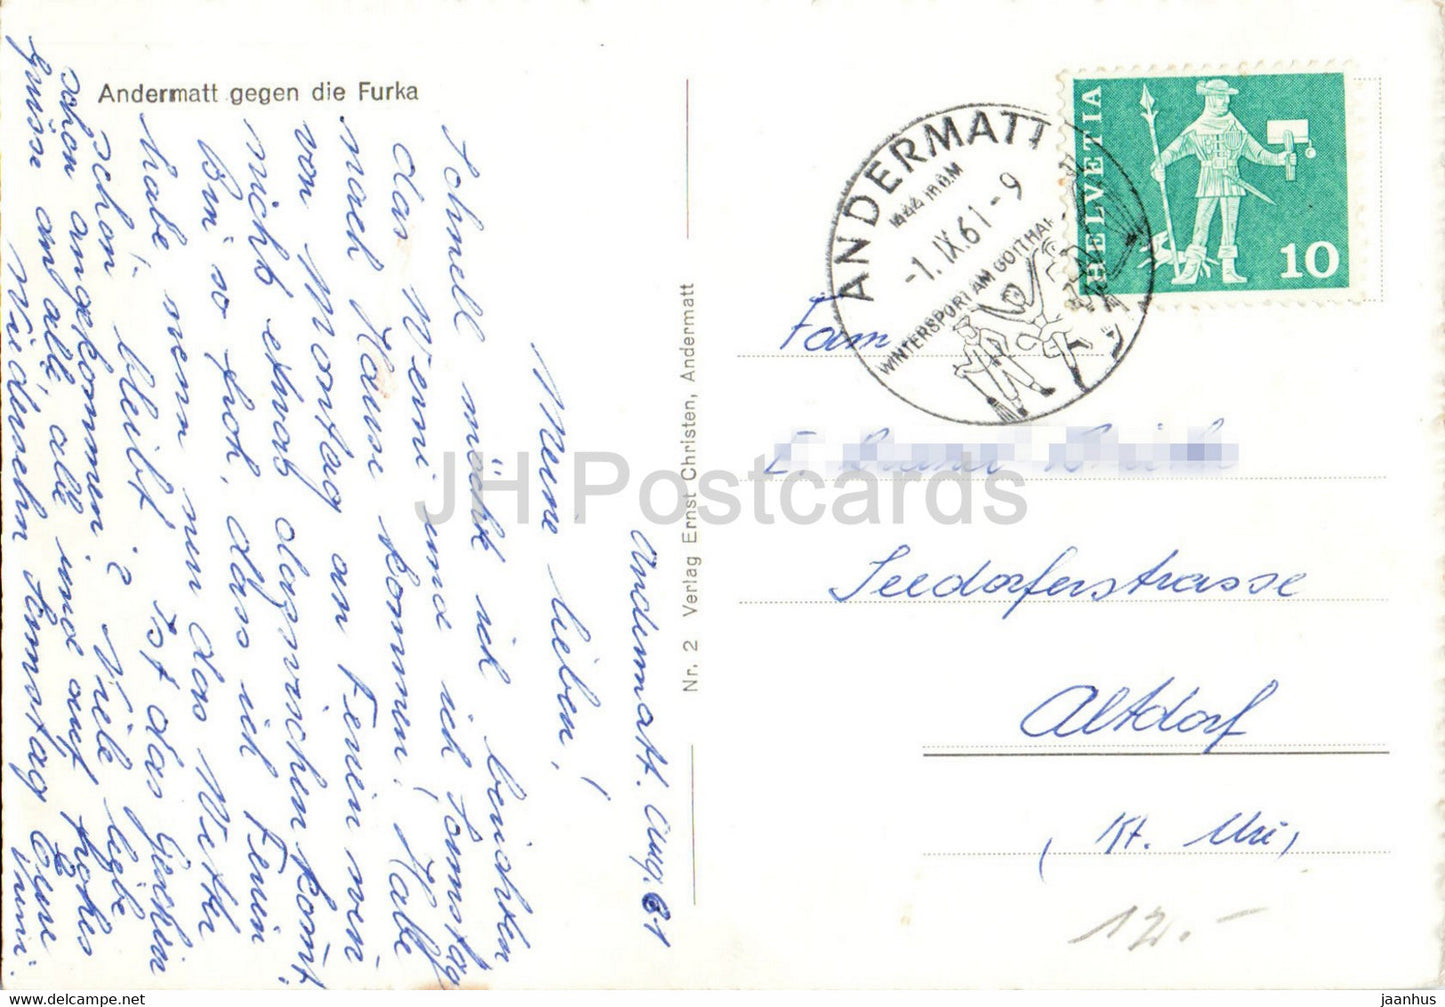 Andermatt gegen die Furka
Andermatt. Aug. 61
Meine lieben!
Schnell möcht ich berichten
das Werni und ich Samstag
nach Hause kommen! Habe
von Montag an Ferien wen
nicht etwas dazwischen komt
Bin so froh, dass ich Ferien
habe, wenn nun das Wetter
schön bleibt. Ist das
schon angekommen? Viele liebe
Grüsse an alle, alle und auf frohes
Wiedersehn Samstag Eure
Nr. 2 Verlag Ernst Christen, Andermatt
ANDERMATT
1444 m ü. M
-1.IX.61-9
WINTERSPORT AM GOTTHARD
HELVETIA
10
Fam
Seedorferstrasse
Altdorf
(Kt. Uri)
12.-
JH Postcards
www.delcampe.net
jaanhus